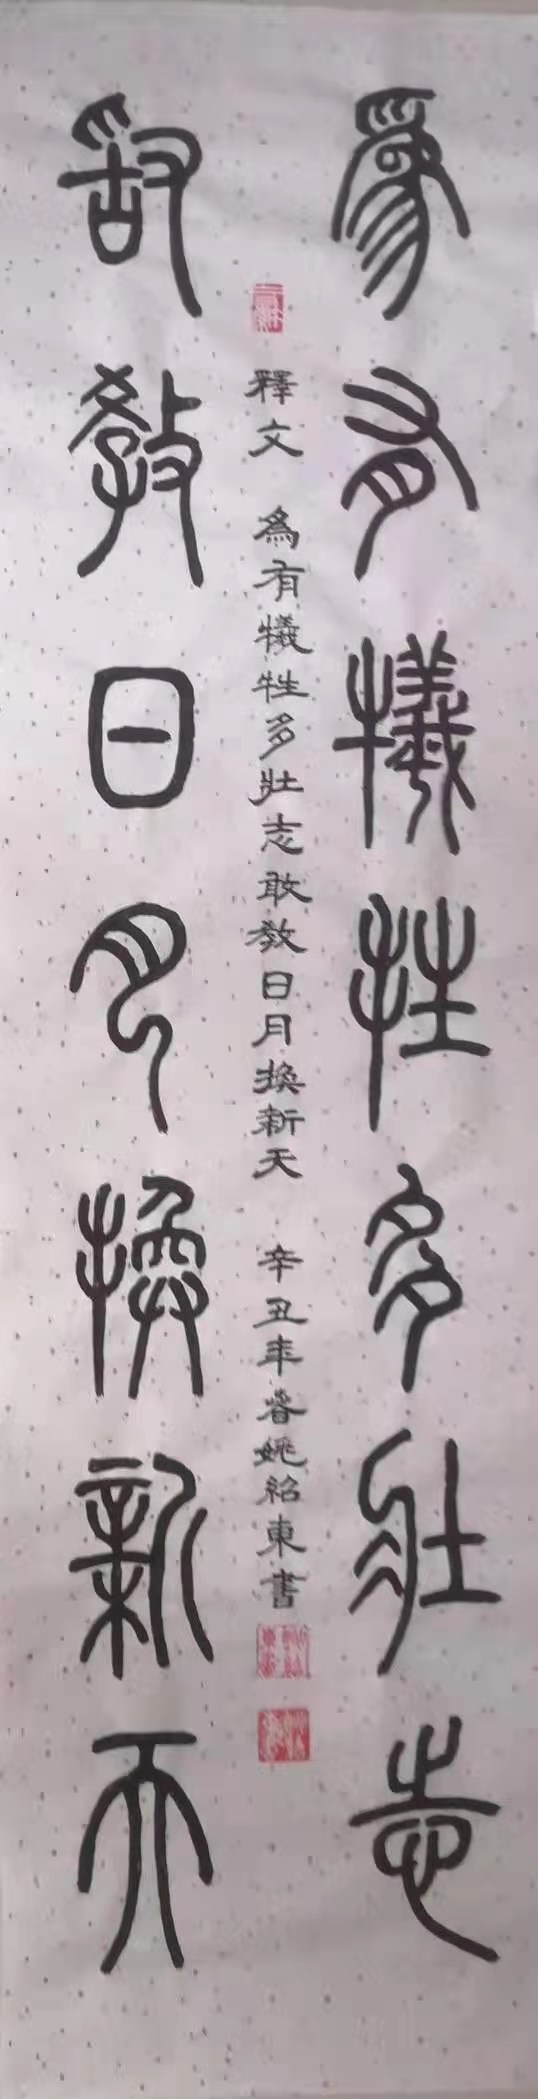 為有犧牲多壯志
敢教日月換新天
釋文 為有犧牲多壯志敢教日月換新天 辛丑年春姚紹東書